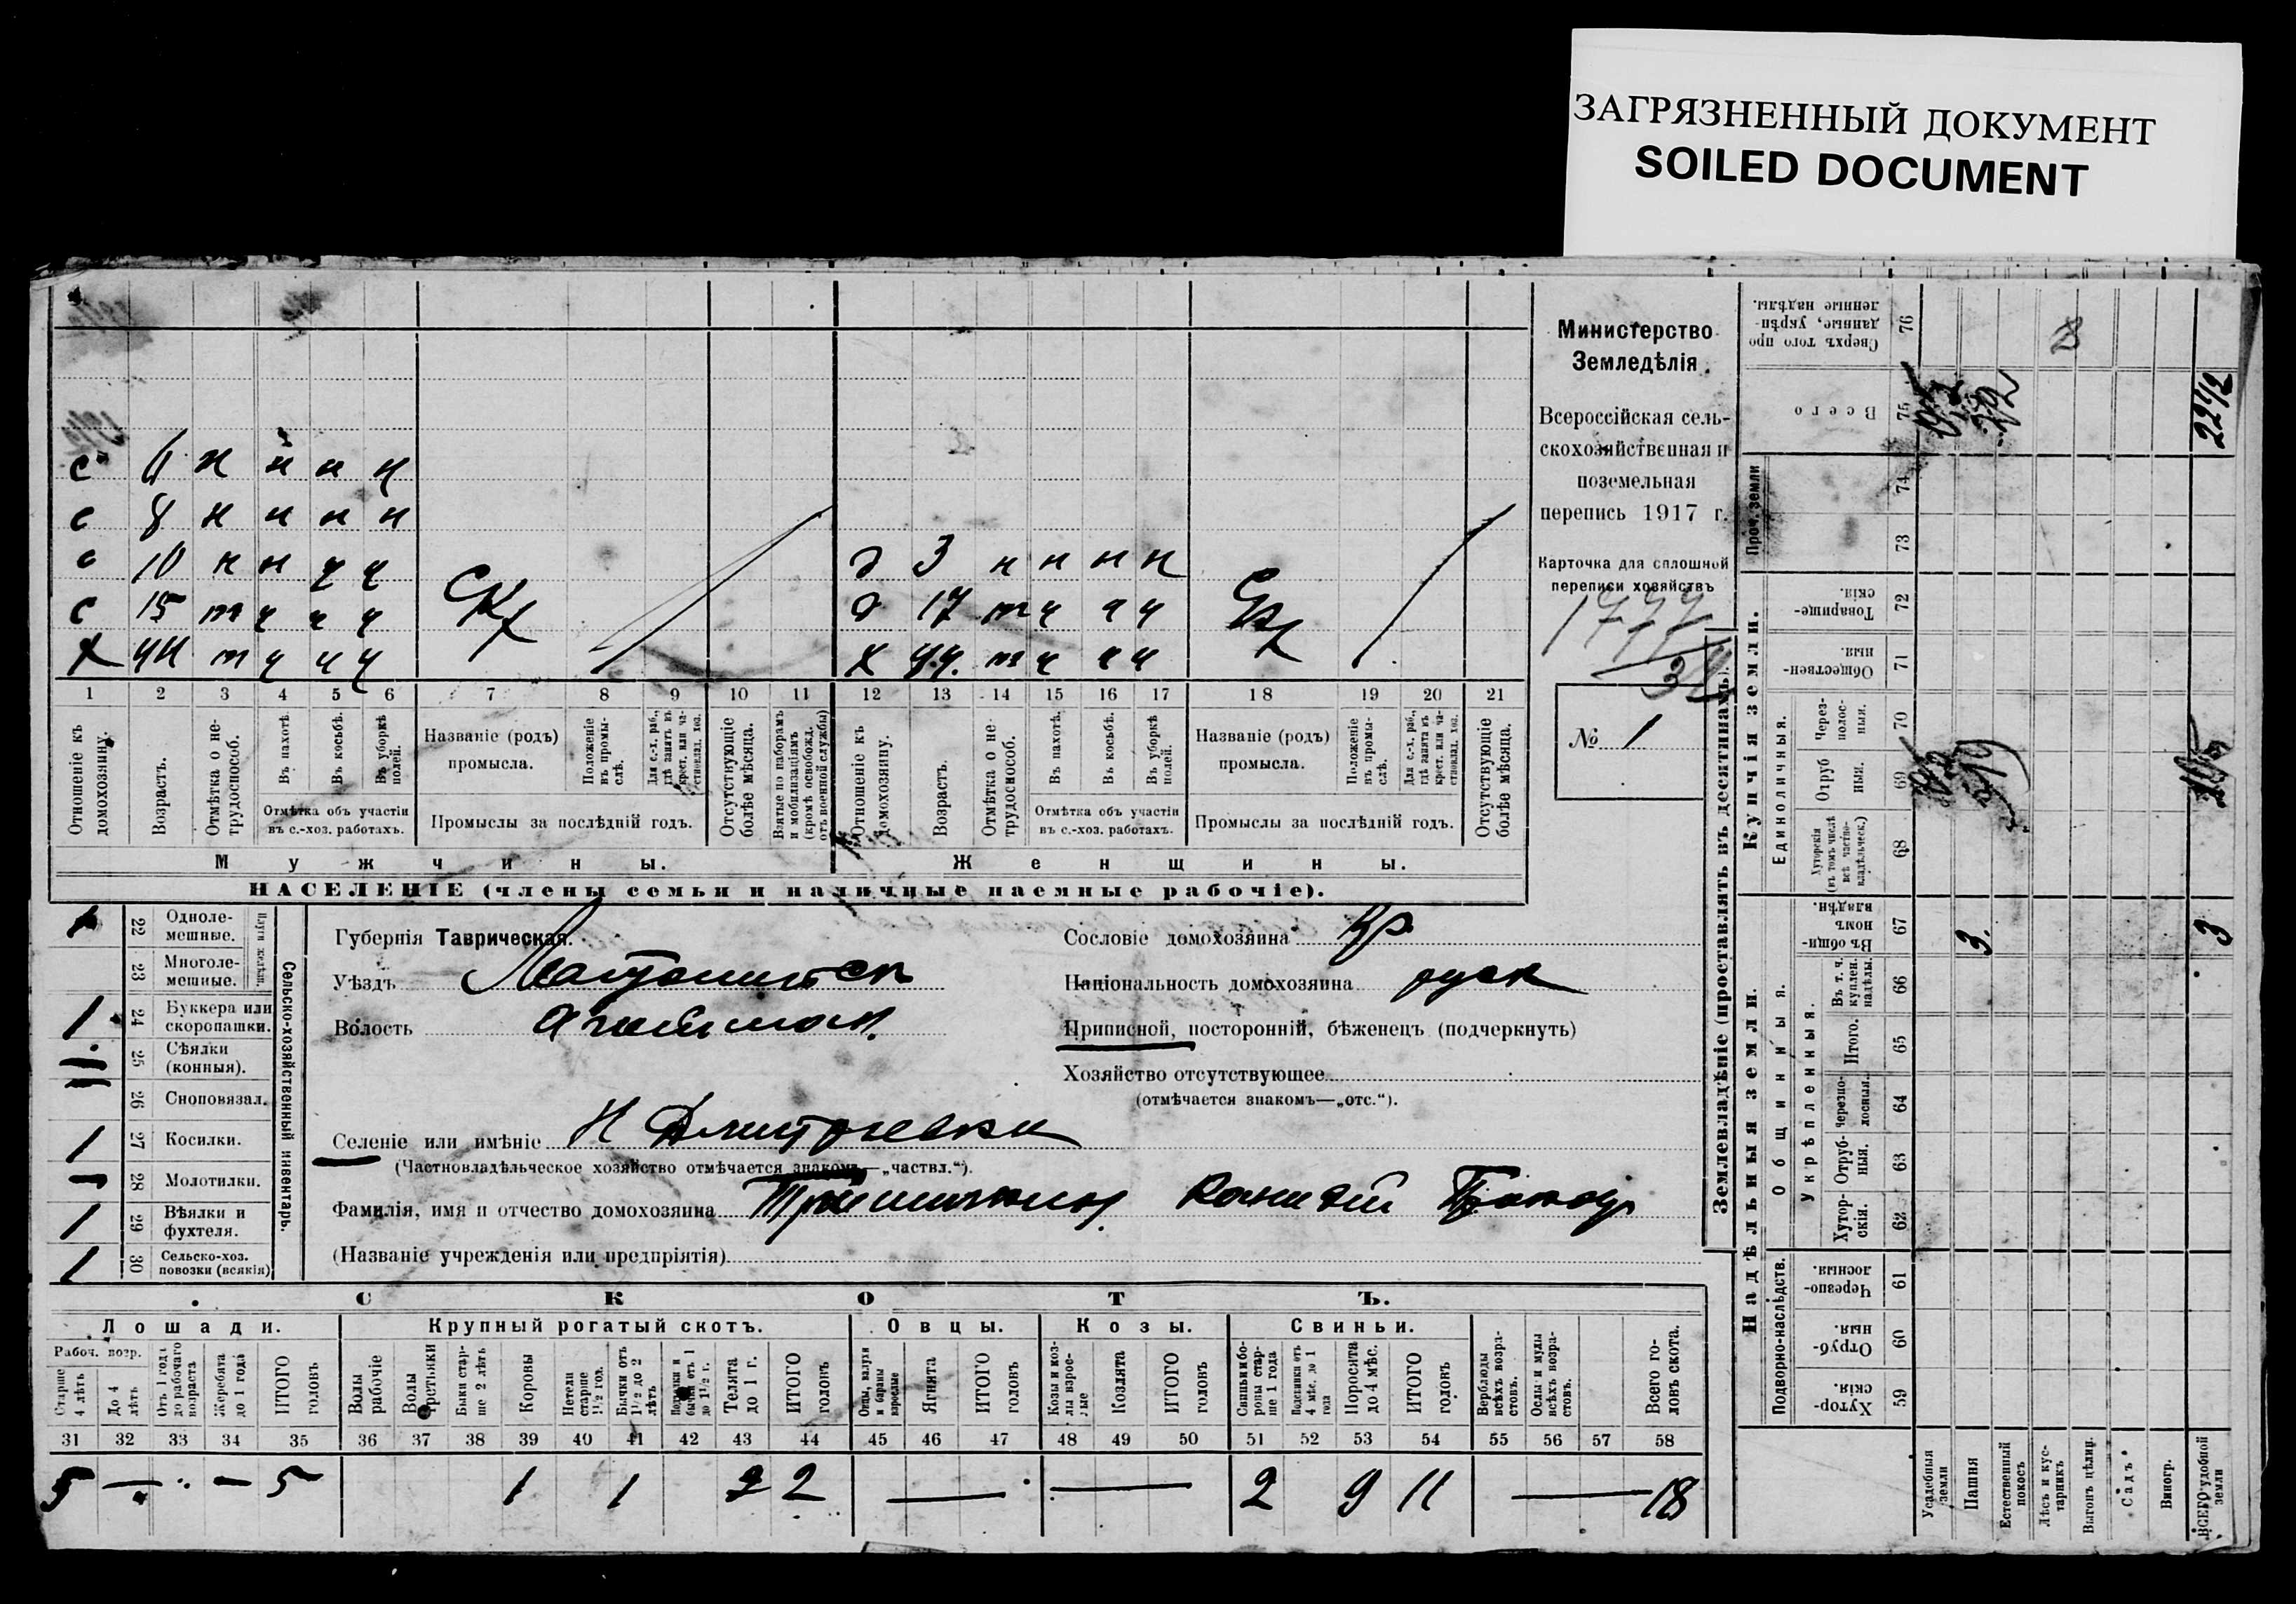 ЗАГРЯЗНЕННЫЙ ДОКУМЕНТ
SOILED DOCUMENT
с н н н н
с 8 н н н н
с 10 н н ч ч
с 15 т ч ч ч
х 44 т ч ч ч
д 3 н н н н
д 17 т ч ч ч
х 44 т ч ч ч
1 2 3 4 5 6 7 8 9 10 11 12 13 14 15 16 17 18 19 20 21
Отношеніе къ домохозяину.
Возрастъ.
Отмѣтка о не-трудоспособ.
Въ пахотѣ.
Въ косьбѣ.
Въ уборкѣ полей.
Отмѣтка объ участіи въ с.-хоз. работахъ.
Названіе (родъ) промысла.
Положеніе въ промы-слѣ.
Для с.-х. раб., гдѣ занятъ въ крест. или ча-стновлад. хоз.
Промыслы за послѣдній годъ.
Отсутствующіе болѣе мѣсяца.
Взятые по наборамъ и мобилизаціямъ (кромѣ освобожд. отъ военной службы)
Отношеніе къ домохозяину.
Возрастъ.
Отмѣтка о не-трудоспособ.
Въ пахотѣ.
Въ косьбѣ.
Въ уборкѣ полей.
Отмѣтка объ участіи въ с.-хоз. работахъ.
Названіе (родъ) промысла.
Положеніе въ промы-слѣ.
Для с.-х. раб., гдѣ занята въ крест. или ча-стновлад. хоз.
Промыслы за послѣдній годъ.
Отсутствующіе болѣе мѣсяца.
Мужчины.
Женщины.
НАСЕЛЕНІЕ (члены семьи и наличные наемные рабочіе).
Министерство
Земледѣлія.
Всероссійская сель-
скохозяйственная и
поземельная
перепись 1917 г.
Карточка для сплошной
переписи хозяйствъ
№ 1
22 Одноле-мешные. 1
23 Многоле-мешные.
Плуги желѣзн.
24 Буккера или скоропашки. 1
25 Сѣялки (конныя).
26 Сноповязал.
27 Косилки. 1
28 Молотилки. 1
29 Вѣялки и фухтеля. 1
30 Сельско-хоз. повозки (всякія) 1
Сельско-хозяйственный инвентарь.
Губернія Таврическая.
Уѣздъ
Волость
Селеніе или имѣніе Н Дмитровка
(Частновладѣльческое хозяйство отмѣчается знакомъ—„частвл.“).
Фамилія, имя и отчество домохозяина
(Названіе учрежденія или предпріятія)
Сословіе домохозяина кр.
Національность домохозяина русск
Приписной, посторонній, бѣженецъ (подчеркнуть)
Хозяйство отсутствующее
(отмѣчается знакомъ—„отс.“).
СКОТЪ.
Лошади. Крупный рогатый скотъ. Овцы. Козы. Свиньи.
Рабоч. возр.
Старше 4 лѣтъ
До 4 лѣтъ
Отъ 1 года до рабочаго возраста
Жеребята до 1 года
ИТОГО головъ
Волы рабочіе
Волы третьяки
Быки стар-ше 2 лѣтъ
Коровы
Нетели старше 1½ год.
Бычки отъ 1½ до 2 лѣтъ
Подтелки и бычки отъ 1 до 1½ г.
Телята до 1 г.
ИТОГО головъ
Овцы, валухи и бараны взрослые
Ягнята
ИТОГО головъ
Козы и коз-лы взрос-лые
Козлята
ИТОГО головъ
Свиньи и бо-ровы стар-ше 1 года
Подсвинки отъ 4 мѣс. до 1 года
Поросята до 4 мѣс.
ИТОГО головъ
Верблюды всѣхъ возра-стовъ.
Ослы и мулы всѣхъ возра-стовъ.
Всего го-ловъ скота.
31 32 33 34 35 36 37 38 39 40 41 42 43 44 45 46 47 48 49 50 51 52 53 54 55 56 57 58
5 — — 5 1 1 2 — — 2 9 11 — 18
Землевладѣніе (проставлять въ десятинахъ).
Надѣльныя земли.
Купчія земли.
Проч. земли
Подворно-наслѣдств.
Общинныя.
Укрѣпленныя.
Единоличныя.
Хутор-скія. 59
Отруб-ныя. 60
Черезпо-лосныя. 61
Хутор-скія. 62
Отруб-ныя. 63
Черезпо-лосныя. 64
Итого. 65
Въ т. ч. куплен. надѣлы. 66
Въ общи-номъ владѣн. 67
Хуторскія (въ томъ числѣ всѣ частно-владѣльческ.) 68
Отруб ныя. 69
Через-полос-ныя. 70
Обществен-ныя. 71
Товарище-скія. 72
73
74
Всего 75
Сверхъ того про данные, укрѣп-ленные надѣлы. 76
Усадебныя земли
Пашня 3.
Естественный покосъ
Лѣсъ и кус-тарникъ
Выгонъ цѣлин.
Садъ
Виногр.
ВСЕГО удобной земли 3 22½